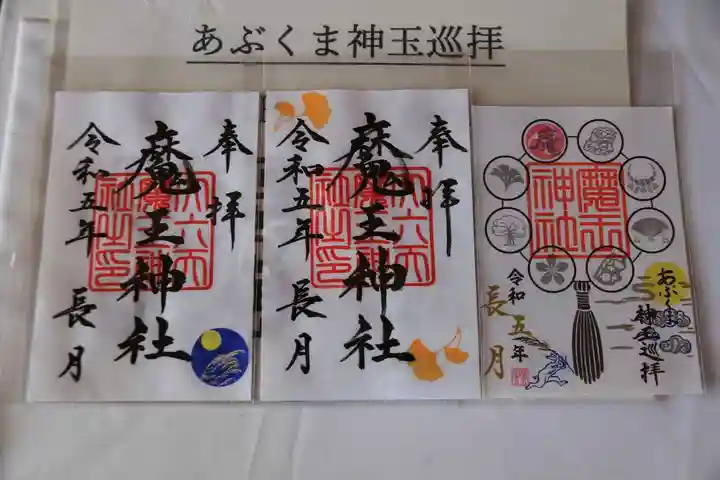 あぶくま神玉巡拝
奉拝
魔王神社
令和五年 長月
奉拝
魔王神社
令和五年 長月
魔王
神社
あぶくま
神玉巡拝
令和五年
長月